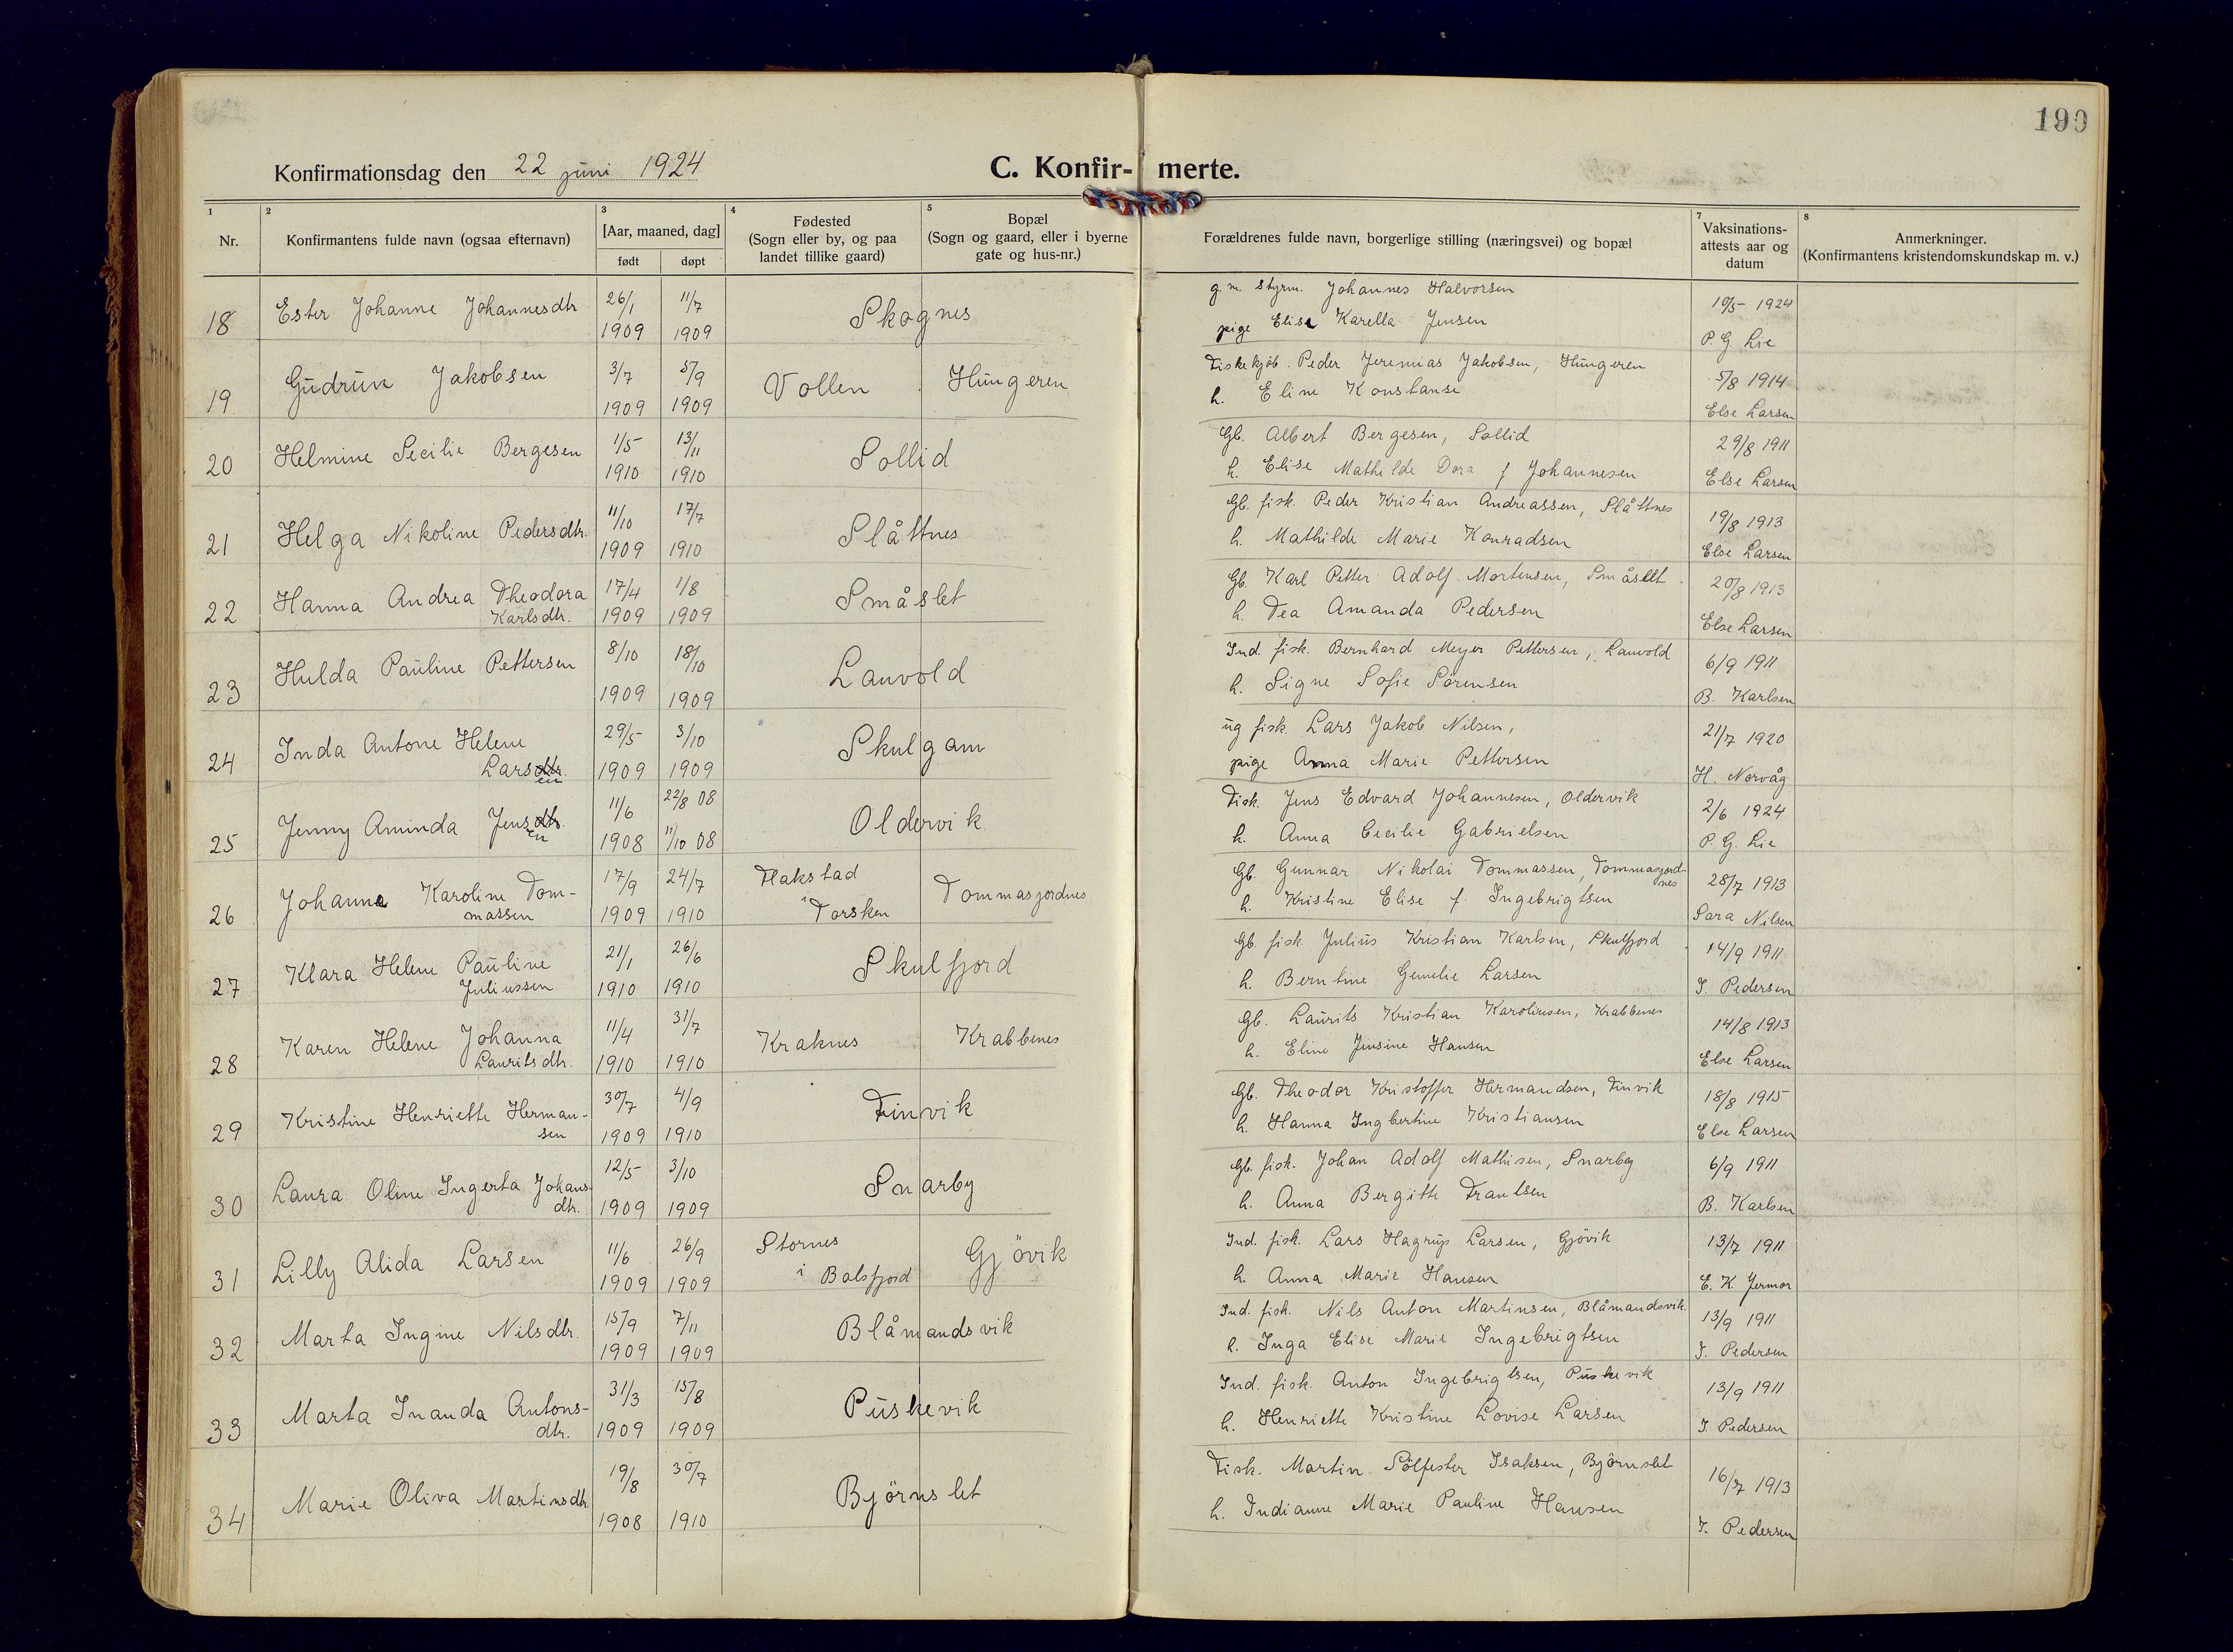 190
Konfirmationsdag den 22 juni 1924
C. Konfir- merte.
1 Nr.
2 Konfirmantens fulde navn (ogsaa efternavn)
3 [Aar, maaned, dag]
født døpt
4 Fødested
(Sogn eller by, og paa
landet tillike gaard)
5 Bopæl
(Sogn og gaard, eller i byerne
gate og hus-nr.)
Forældrenes fulde navn, borgerlige stilling (næringsvei) og bopæl
7 Vaksinations-
attests aar og
datum
8 Anmerkninger.
(Konfirmantens kristendomskundskap m. v.)
18 Ester Johanne Johannesdtr 26/1 1909 11/7 1909 Skognes
g. m. styrm. Johannes Halvorsen
pige Elise Karella Jensen
10/5 1924
P. G. Lie
19 Gudrun Jakobsen 3/7 1909 5/9 1909 Vollen Hungeren
Fiskekjøb. Peder Jeremias Jakobsen, Hungeren
h. Eline Konstanse
5/8 1914
Else Larsen
20 Helmine Secilie Bergesen 1/5 1910 13/11 1910 Sollid
Gb. Albert Bergesen, Sollid
h. Elise Mathilde Dora f Johannesen
29/8 1911
Else Larsen
21 Helga Nikoline Pedersdtr. 11/10 1909 17/7 1910 Slåttnes
Gb. fisk. Peder Kristian Andreassen, Slåttnes
h. Mathilde Marie Konradsen
19/8 1913
Else Larsen
22 Hanna Andrea Theodora
Karlsdtr. 17/4 1909 1/8 1909 Småslet
Gb. Karl Petter Adolf Mortensen, Småslet
h. Tea Amanda Pedersen
20/8 1913
Else Larsen
23 Hulda Pauline Pettersen 8/10 1909 18/10 1909 Lauvold
Ind. fisk. Bernhard Meyer Pettersen, Lauvold
h. Signe Sofie Sørensen
6/9 1911
B. Karlsen
24 Inda Antone Helene
Larsdtr. en 29/5 1909 3/10 1909 Skulgam
ug fisk. Lars Jakob Nilsen,
pige Anna Marie Pettersen
21/7 1920
H. Norvåg
25 Jenny Aminda Jensdtr. en 11/6 1908 22/8 08 11/10 08 Oldervik
Fisk. Jens Edvard Johannesen, Oldervik
h. Anna Cecilie Gabrielsen
2/6 1924
P. G. Lie
26 Johanna Karoline Tom-
massen 17/9 1909 24/7 1910 Flakstad
i Torsken Tommasjordnes
Gb. Gunnar Nikolai Tommassen, Tommasjord-
nes
h. Kristine Elise f. Ingebrigtsen
28/7 1913
Sara Nilsen
27 Klara Helene Pauline
Juliussen 21/1 1910 26/6 1910 Skulfjord
Gb. fisk. Julius Kristian Karlsen, Skulfjord
h. Berntine Gemelie Larsen
14/9 1911
I. Pedersen
28 Karen Helene Johanna
Lauritsdtr. 11/4 1910 31/7 1910 Kraknes Krabbenes
Gb. Laurits Kristian Karoliusen, Krabbenes
h. Eline Jensine Hansen
14/8 1913
Else Larsen
29 Kristine Henriette Herman-
sen 30/7 1909 4/9 1910 Finvik
Gb. Theodor Kristoffer Hermandsen, Finvik
h. Hanna Ingbertine Kristiansen
18/8 1915
Else Larsen
30 Laura Oline Ingerta Johans-
dtr. 12/5 1909 3/10 1909 Snarby
Gb. fisk. Johan Adolf Mathisen, Snarby
h. Anna Bergitte Frantsen
6/9 1911
B. Karlsen
31 Lilly Alida Larsen 11/6 1909 26/9 1909 Stornes
i Balsfjord Gjövik
Ind. fisk. Lars Hagrup Larsen, Gjövik
h. Anna Marie Hansen
13/7 1911
E. K. Jermar
32 Marta Ingine Nilsdtr. 15/9 1909 7/11 1909 Blåmandsvik
Ind. fisk. Nils Anton Martinsen, Blåmandsvik.
h. Inga Elise Marie Ingebrigtsen
13/9 1911
I. Pedersen
33 Marta Inanda Antons-
dtr. 31/3 1909 15/8 1909 Puskevik
Ind. fisk. Anton Ingebrigtsen, Puskevik
h. Henriette Kristine Lovise Larsen
13/9 1911
I. Pedersen
34 Marie Oliva Martinsdtr 19/8 1908 30/7 1910 Björnslet
Fisk. Martin Sölfester Isaksen, Björnslet
h. Indianne Marie Pauline Hansen
16/7 1913
I. Pedersen